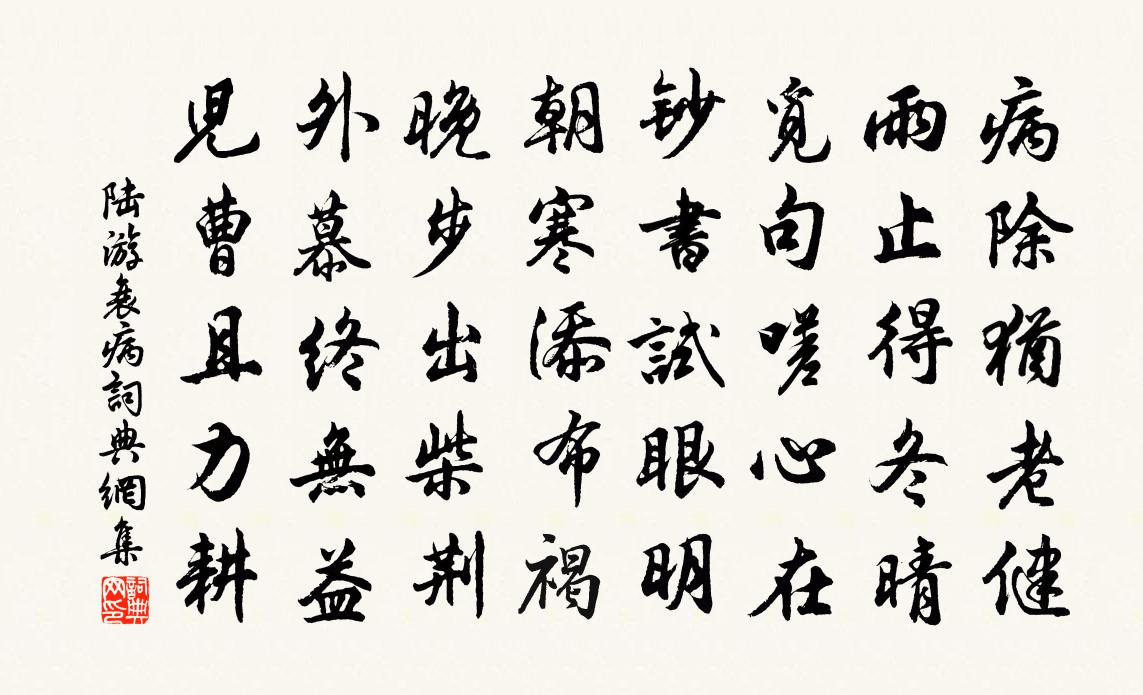 病除猶老健
雨止得冬晴
覓句嗟心在
鈔書試眼明
朝寒添布褐
晚步出柴荆
外慕終無益
兒曹且力耕
陸游衰病詞典網集
詞典網印